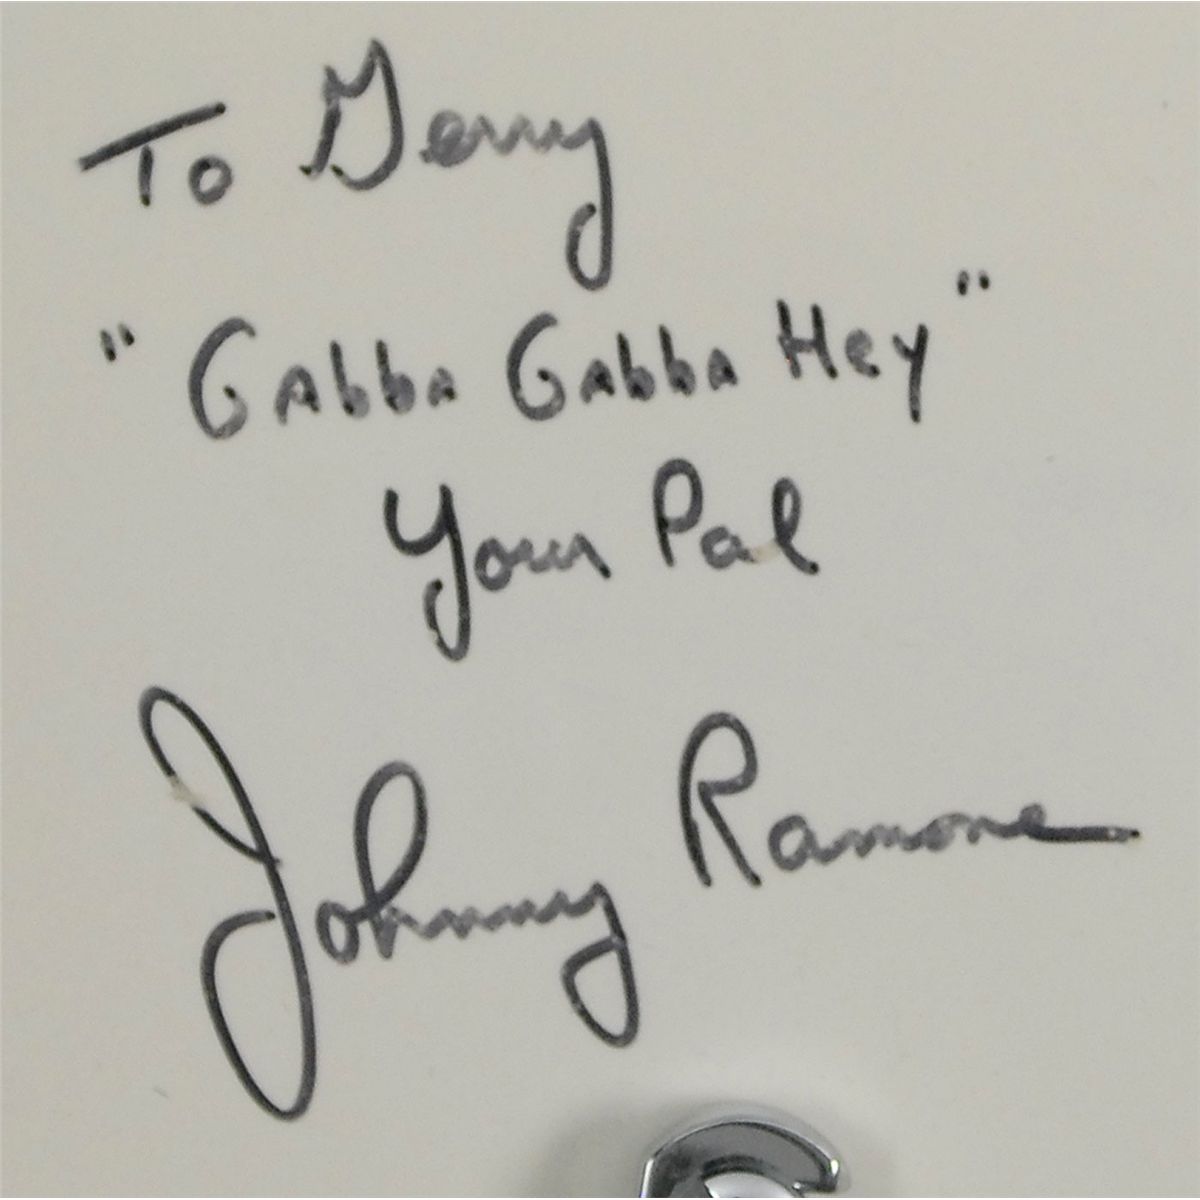 To Gerry
"Gabba Gabba Hey"
Your Pal
Johnny Ramone